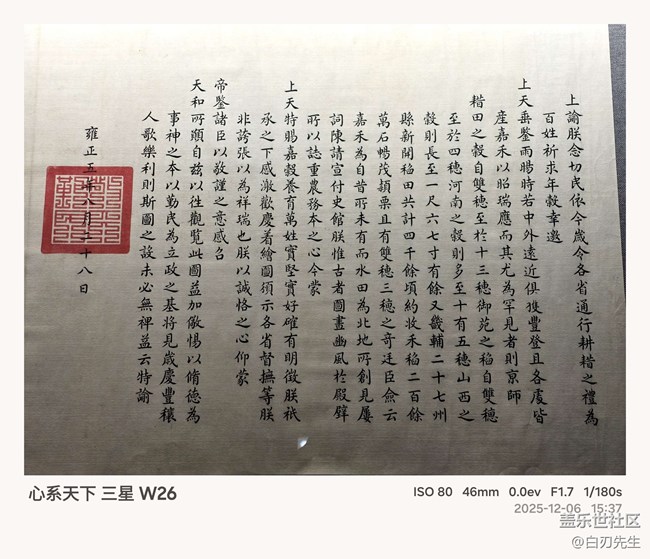 上諭朕念切民依今歲令各省通行耕耤之禮為
百姓祈求年穀幸邀
上天垂鑒雨暘時若中外遠近俱獲豐登且各處皆
產嘉禾以昭瑞應而其尤為罕見者則京師
耤田之穀自雙穗至於十三穗御苑之稻自雙穗
至於四穗河南之穀則多至十有五穗山西之
穀則長至一尺六七寸有餘又畿輔二十七州
縣新開稻田共計四千餘頃約收禾稻二百餘
萬石暢茂穎栗且有雙穗三穗之奇廷臣僉云
嘉禾為自昔所未有而水田為北地所創見屢
詞陳請宣付史館朕惟古者圖畫豳風於殿壁
所以誌重農務本之心今蒙
上天特賜嘉穀養育萬姓實堅實好確有明徵朕祇
承之下感激歡慶着繪圖頒示各省督撫等朕
非誇張以為祥瑞也朕以誠恪之心仰蒙
帝鑒諸臣以敬謹之意感召
天和所願自茲以往觀覽此圖益加儆惕以脩德為
事神之本以勤民為立政之基將見歲慶豐穰
人歌樂利則斯圖之設未必無裨益云特諭
雍正五年八月二十八日
心系天下 三星 W26
ISO 80 46mm 0.0ev F1.7 1/180s
2025-12-06 15:37
盖乐世社区
@白刃先生